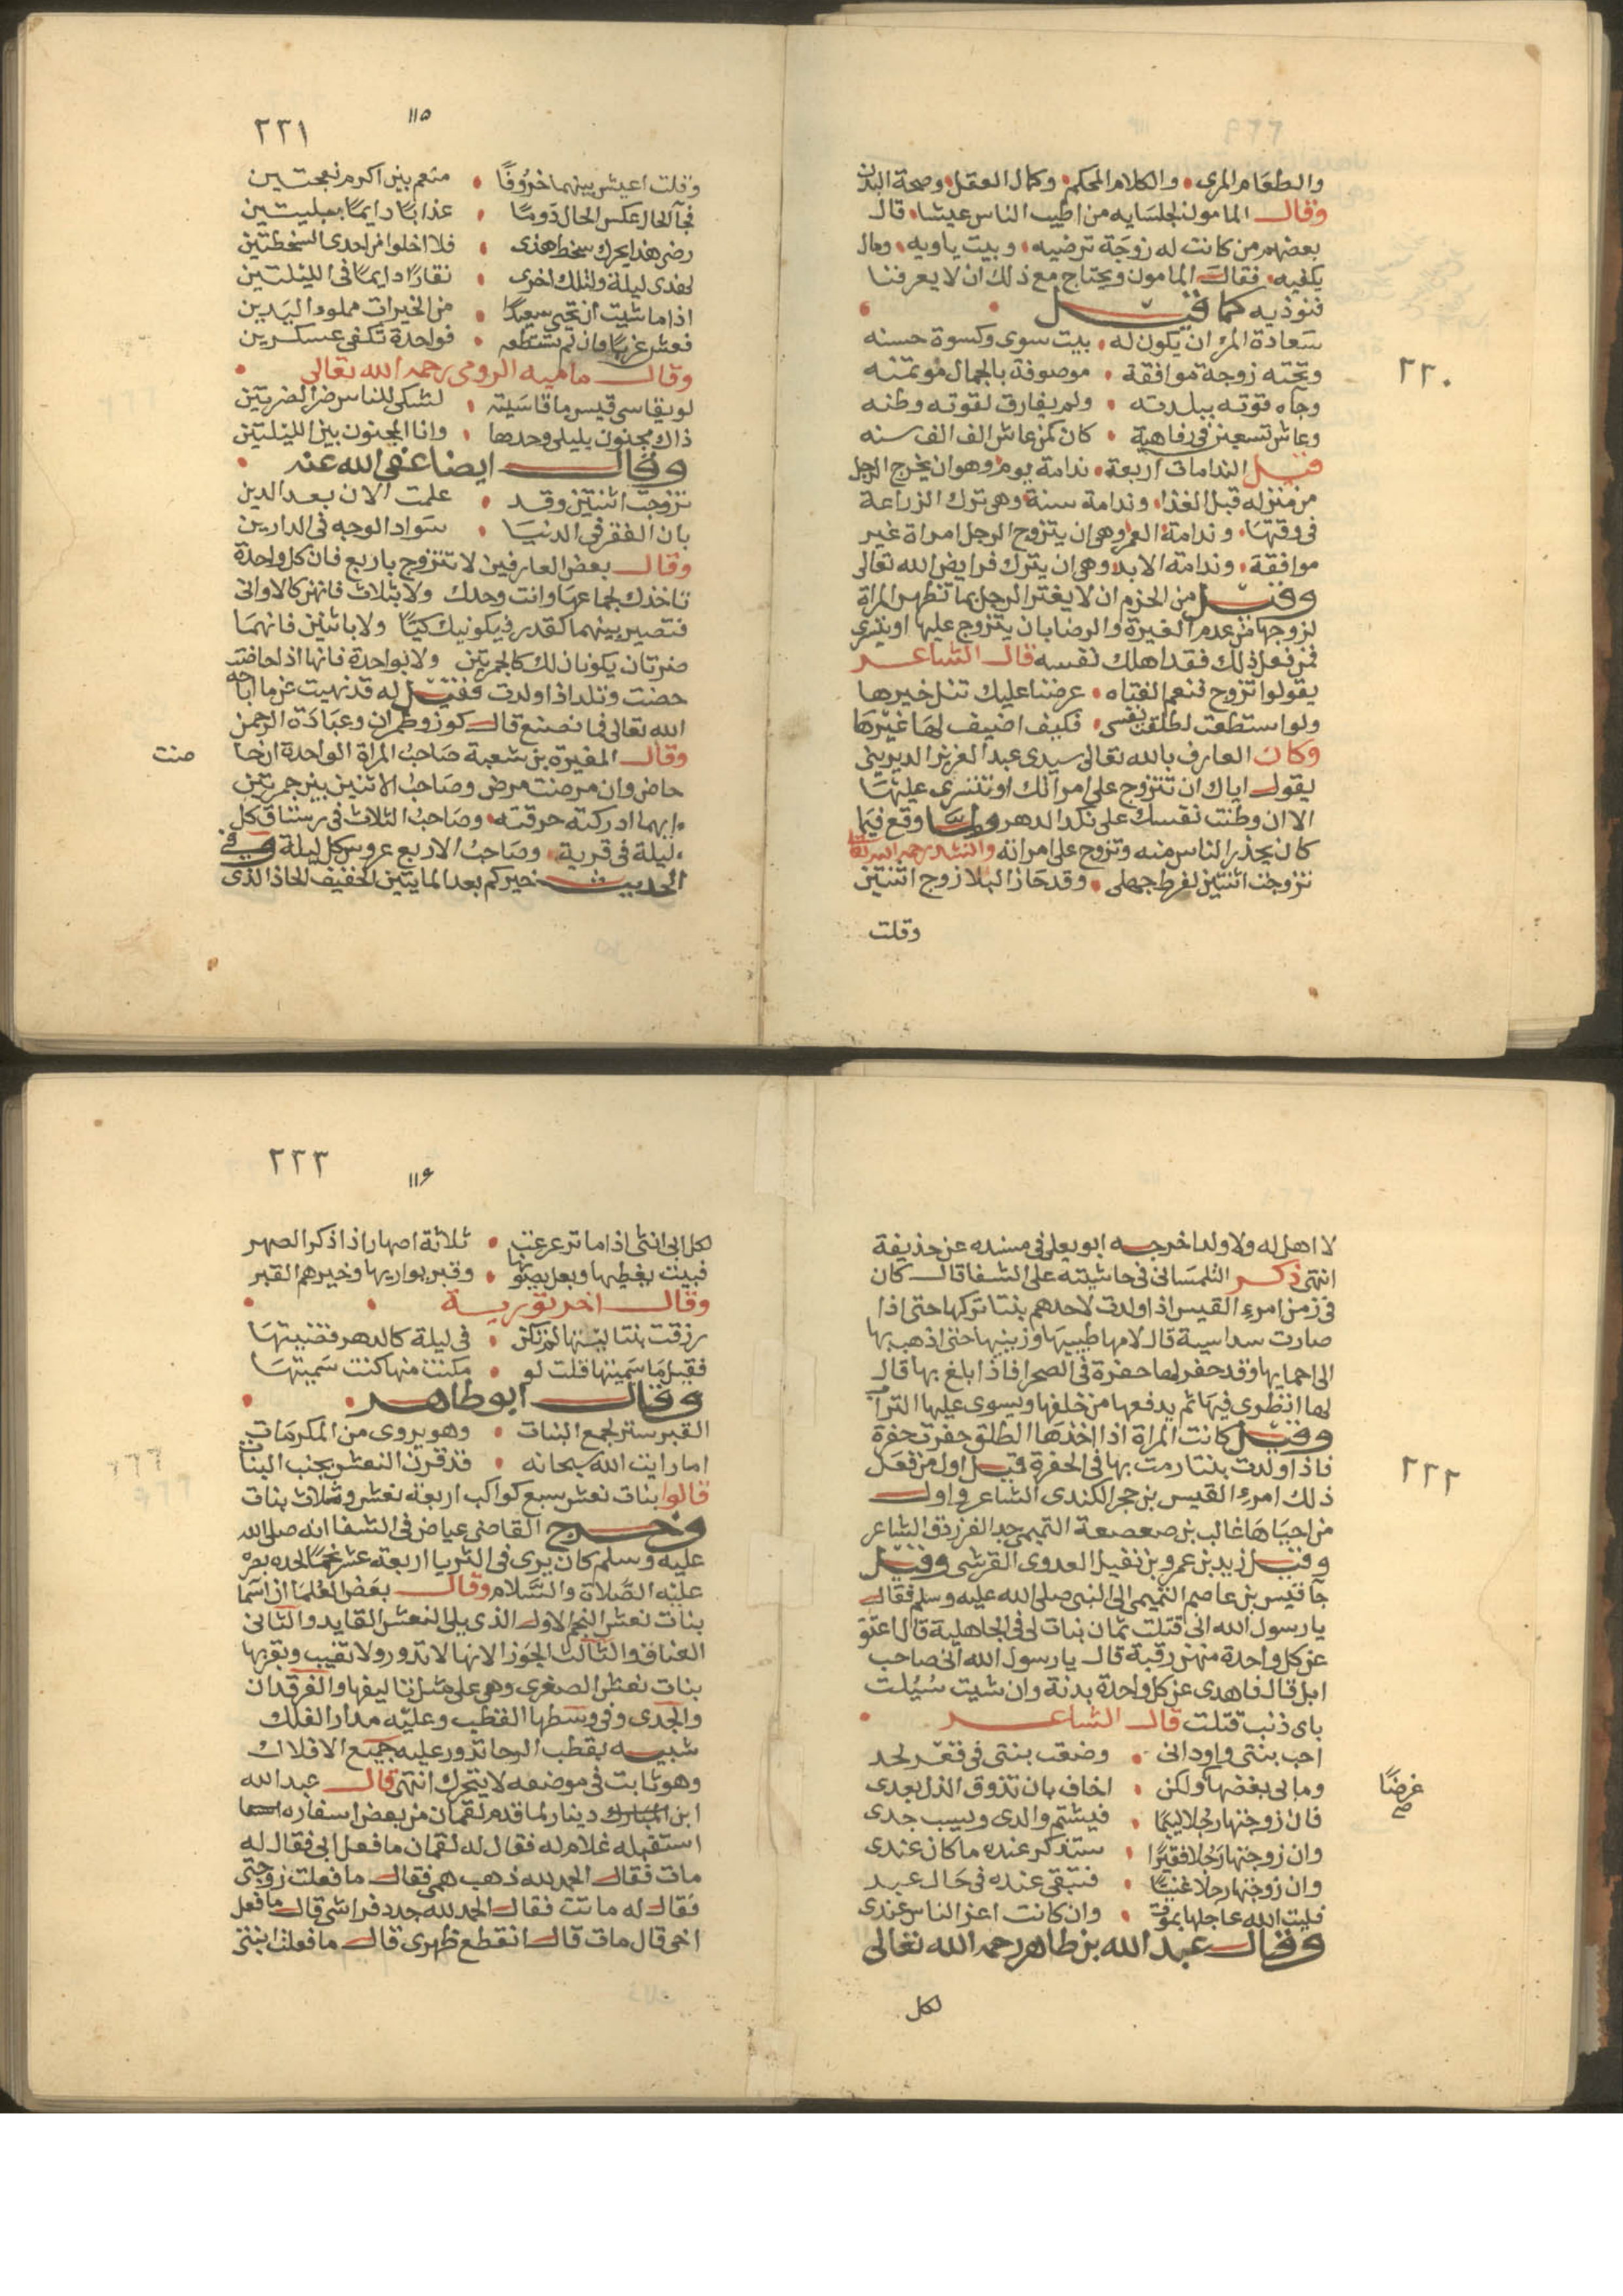 والطعام المرى والكلام المحكم وكمال العقل وصحة البدن
وقال المامون لجلسايه من اطيب الناس عيشا قال
بعضهم من كانت له زوجة ترضيه وبيت ياويه ومال
يكفيه فقال المامون ويحتاج مع ذلك ان لا يعرفنا
فنوذيه كما قيل
سعادة المرء ان يكون له بيت سوى وكسوة حسنه
وتحته زوجة موافقة موصوفة بالجمال موتمنه
وجاه قوته ببلدته ولم يفارق لقوته وطنه
وعاش تسعين في رفاهية كان كمن عاش الف الف سنه
٢٢٠
قيل الندامات اربعة ندامة يوم وهو ان يخرج الرجل
من منزله قبل الغذا وندامة سنة وهي ترك الزراعة
في وقتها وندامة العمر وهي ان يتزوج الرجل امراة غير
موافقة وندامة الابد وهي ان يترك فرايض الله تعالى
وقيل من الحزم ان لا يغتر الرجل بما تظهر المراة
لزوجها من عدم الغيرة والرضا بان يتزوج عليها او يتسرى
فمن فعل ذلك فقد اهلك نفسه قال الشاعر
يقولوا تزوج فنعم الفتاه عرضنا عليك تنل خيرها
ولو استطعت لطلقت نفسى فكيف اضيف لها غيرها
وكان العارف بالله تعالى سيدى عبد العزيز الديرينى
يقول اياك ان تتزوج على امراتك او تتسرى عليها
الا ان وطنت نفسك على نكد الدهر ولما وقع فيما
كان يحذر الناس منه وتزوج على امراته وانشد رحمه الله تعالى
تزوجت اثنتين لفرط جهلى وقد حاز البلا زوج اثنتين
وقلت
١١٥
٢٢١
وقلت اعيش بينهما خروفا منعم بين اكرم نعجتين
فجآ الحال عكس الحال دوما عذابا دايما ببليتين
رضى هذا يحرك سخط هذى فلا اخلوا من احدى السخطتين
لهذى ليلة ولتلك اخرى نقارا دايما فى الليلتين
اذا ما شيت ان تحيى سعيدا من الخيرات مملوء اليدين
فعش عزبا فان لم تستطعه فواحدة تكفى عسكرين
وقال ماميه الرومى رحمه الله تعالى
لو يقاسى قيس ما قاسيته لشكى للناس ضر الضرتين
ذاك مجنون بليلى وحدها وانا المجنون بين الليلتين
وقال ايضا عفى الله عنه
تزوجت اثنتين وقد علمت الان بعد الدين
بان الفقر في الدنيا سواد الوجه فى الدارين
وقال بعض العارفين لا تتزوج باربع فان كل واحدة
تاخذك لجماعها وانت وحدك ولا بثلاث فانهن كالاوانى
فتصير بينهما كقدر فيكونيك كيتا ولا باثنين فانهما
ضرتان يكونان لك كالجمرتين ولا بواحدة فانها اذا حاضت
حضت وتلد اذا ولدت فقيل له قد نهيت عن ما اباحه
الله تعالى فما نصنع قال كوز وطمران وعبادة الرحمن
وقال المغيرة بن شعبة صاحب المراة الواحدة ان حا
ضت
حاض وان مرضت مرض وصاحب الاثنين بين جمرتين
ايهما ادركته حرقته وصاحب الثلاث فى رستاق كل
ليلة فى قرية وصاحب الاربع عروس كل ليلة وفى
الحديث خيركم بعد المايتين الخفيف الحاذ الذى
لا اهل له ولا ولد اخرجه ابو يعلى فى مسنده عن حذيفة
انتهى ذكر التلمسانى فى حاشيته على الشفا قال كان
فى زمن امرء القيس اذا ولدت لاحدهم بنتا تركها حتى اذا
صارت سداسية قال لامها طيبيها وزينيها حتى اذهب بها
الى احمايها وقد حفر لها حفرة فى الصحرا فاذا بلغ بها قال
لها انظرى فيها ثم يدفعها من خلفها ويسوى عليها التراب
وقيل كانت المراة اذا اخذها الطلق حفرت حفرة
فاذا ولدت بنتا رمت بها فى الحفرة قيل اول من فعل
٢٢٢
ذلك امرء القيس بن حجر الكندى الشاعر واول
من احياها غالب بن صعصعة التميمى جد الفرزدق الشاعر
وقيل زيد بن عمرو بن نفيل العدوى القرشى وقيل
جآ قيس بن عاصم التميمى الى النبى صلى الله عليه وسلم فقال
يا رسول الله انى قتلت ثمان بنات لى فى الجاهلية قال اعتق
عن كل واحدة منهن رقبة قال يا رسول الله انى صاحب
ابل قال فاهدى عن كل واحدة بدنة وان شيت سئلت
باى ذنب قتلت قال الشاعر
احب بنتى واود انى وضعت بنتى فى قعر لحد
وما بى بغضها ولكن اخاف بان تذوق الذل بعدى
غرضا
صح
فان زوجتها رجلا ليما فيشتم والدى ويسب جدى
وان زوجتها رجلا فقيرا ستذكر عنده ما كان عندى
وان زوجتها رجلا غنيا فتبقى عنده فى حال عبد
فليت الله عاجلها بموت وان كانت اعز الناس عندى
وقال عبد الله بن طاهر رحمه الله تعالى
لكل
١١٦
٢٢٣
لكل ابى انثى اذا ما ترعرعت ثلاثة اصهار اذا ذكر الصهر
فبيت يغطيها وبعل يصونها وقبر يواريها وخيرهم القبر
وقال اخر تورية
رزقت بنتا ليتها لم تكن فى ليلة كالدهر قضيتها
فقيل ما سميتها قلت لو مكنت منها كنت سميتها
وقال ابو طاهر
القبر ستر لجمع البنات وهو يروى من المكرمات
اما رايت الله سبحانه قد قرن النعش بجنب البنات
قالوا بنات نعش سبع كواكب اربعة نعش وثلاث بنات
وخرج القاضى عياض فى الشفا انه صلى الله
عليه وسلم كان يرى فى الثريا اربعة عشر نجما لحده بصره
عليه الصلاة والسلام وقال بعض العلما ان اسما
بنات نعش النجم الاول الذى يلى النعش القايد والثانى
العناق والثالث الجوز الانها لا تدور ولا تغيب وبقربها
بنات نعش الصغرى وهى على مثل تاليفها والفرقدان
والجدى وفى وسطها القطب وعليه مدار الفلك
شبيه بقطب الرحا تدور عليه جميع الافلاك
وهو ثابت فى موضعه لا يتحرك انتهى قال عبد الله
ابن دينار لما قدم لقمان من بعض اسفاره
استقبله غلام له فقال له لقمان ما فعل ابى فقال له
مات فقال الحمد لله ذهب همى فقال ما فعلت زوجتى
فقال له ماتت فقال الحمد لله جدد فراشى قال ما فعل
اخى قال مات قال انقطع ظهرى قال ما فعلت ابنتى